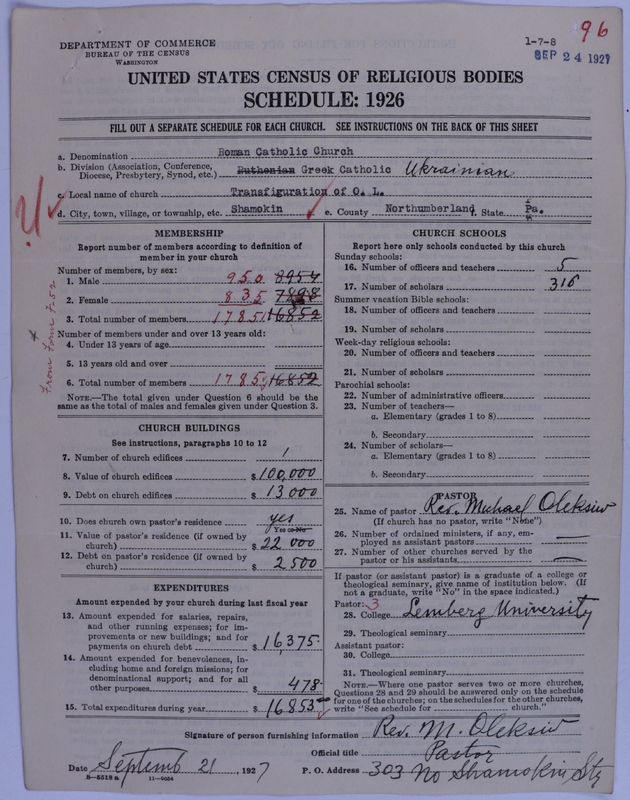 96
DEPARTMENT OF COMMERCE
BUREAU OF THE CENSUS
WASHINGTON
1-7-8
SEP 24 1927
UNITED STATES CENSUS OF RELIGIOUS BODIES
SCHEDULE: 1926
FILL OUT A SEPARATE SCHEDULE FOR EACH CHURCH. SEE INSTRUCTIONS ON THE BACK OF THIS SHEET
a. Denomination Roman Catholic Church
b. Division (Association, Conference, Diocese, Presbytery, Synod, etc.) Ruthenian Greek Catholic Ukrainian
c. Local name of church Transfiguration of O. L.
d. City, town, village, or township, etc. Shamokin e. County Northumberland f. State Pa.
MEMBERSHIP
Report number of members according to definition of member in your church
Number of members, by sex:
1. Male 950 8954
2. Female 835 7898
3. Total number of members 1785 16852
Number of members under and over 13 years old:
4. Under 13 years of age
5. 13 years old and over
6. Total number of members 1785 16852
NOTE.—The total given under Question 6 should be the same as the total of males and females given under Question 3.
From Form F-52
CHURCH BUILDINGS
See instructions, paragraphs 10 to 12
7. Number of church edifices 1
8. Value of church edifices $100,000
9. Debt on church edifices $13000
10. Does church own pastor's residence yes
Yes or No
11. Value of pastor's residence (if owned by church) $22 000
12. Debt on pastor's residence (if owned by church) $2 500
EXPENDITURES
Amount expended by your church during last fiscal year
13. Amount expended for salaries, repairs, and other running expenses; for improvements or new buildings; and for payments on church debt $16,375
14. Amount expended for benevolences, including home and foreign missions; for denominational support; and for all other purposes $478
15. Total expenditures during year $16853
CHURCH SCHOOLS
Report here only schools conducted by this church
Sunday schools:
16. Number of officers and teachers 5
17. Number of scholars 316
Summer vacation Bible schools:
18. Number of officers and teachers
19. Number of scholars
Week-day religious schools:
20. Number of officers and teachers
21. Number of scholars
Parochial schools:
22. Number of administrative officers
23. Number of teachers—
a. Elementary (grades 1 to 8)
b. Secondary
24. Number of scholars—
a. Elementary (grades 1 to 8)
b. Secondary
PASTOR
25. Name of pastor Rev. Michael Oleksiw
(If church has no pastor, write "None")
26. Number of ordained ministers, if any, employed as assistant pastors —
27. Number of other churches served by the pastor or his assistants —
If pastor (or assistant pastor) is a graduate of a college or theological seminary, give name of institution below. (If not a graduate, write "No" in the space indicated.)
Pastor: 3
28. College Lemberg University
29. Theological seminary
Assistant pastor:
30. College
31. Theological seminary
NOTE.—Where one pastor serves two or more churches, Questions 28 and 29 should be answered only on the schedule for one of the churches; on the schedules for the other churches, write "See schedule for church."
Signature of person furnishing information Rev. M. Oleksiw
Official title Pastor
Date Septemb 21, 1927 P. O. Address 303 No Shamokin Str
8-5518 a 11-9054